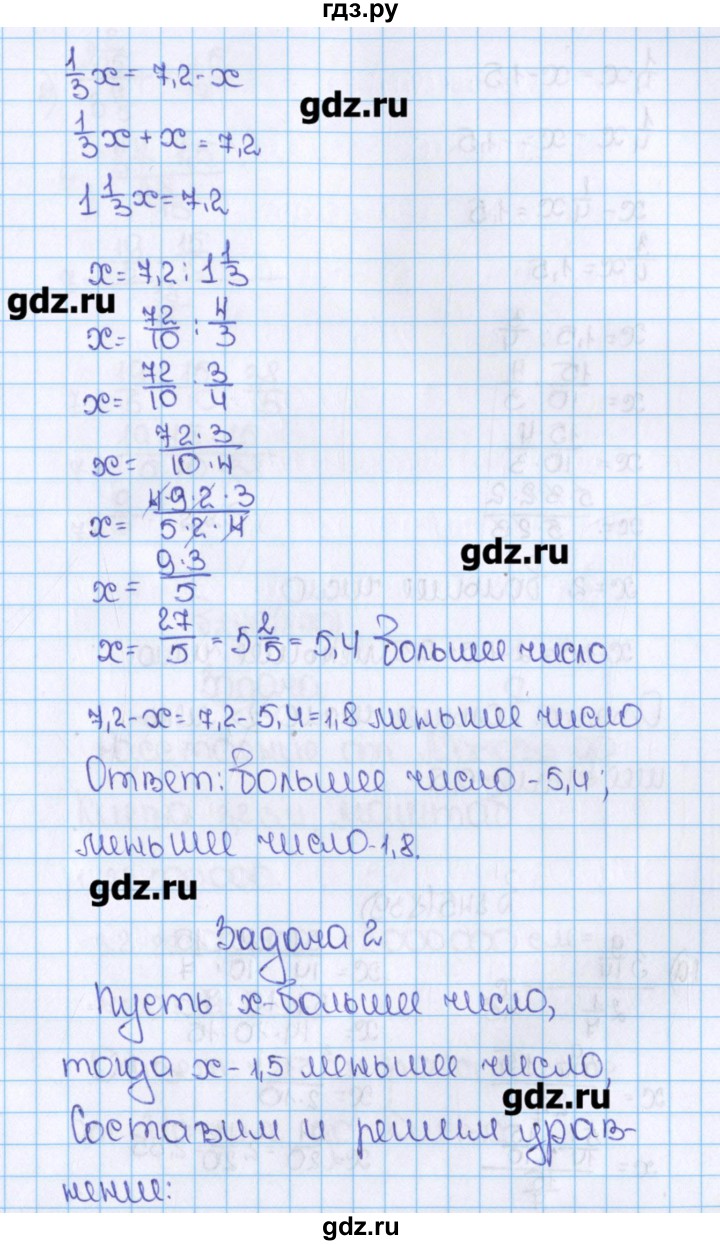 гдз.ру
1/3 x = 7,2 - x
gdz.ru
1/3 x + x = 7,2
1 1/3 x = 7,2
x = 7,2 : 1 1/3
gdz.ru
x = 72/10 : 4/3
x = 72/10 · 3/4
x = 72·3/10·4
x = 4·9·2·3/5·2·4
gdz.ru
x = 9·3/5
x = 27/5 = 5 2/5 = 5,4 большее число
7,2 - x = 7,2 - 5,4 = 1,8 меньшее число
Ответ: большее число - 5,4;
меньшее число - 1,8.
gdz.ru
Задача 2
Пусть x - большее число,
тогда x - 1,5 меньшее число,
gdz.ru
Составим и решим урав-
нение:
gdz.ru